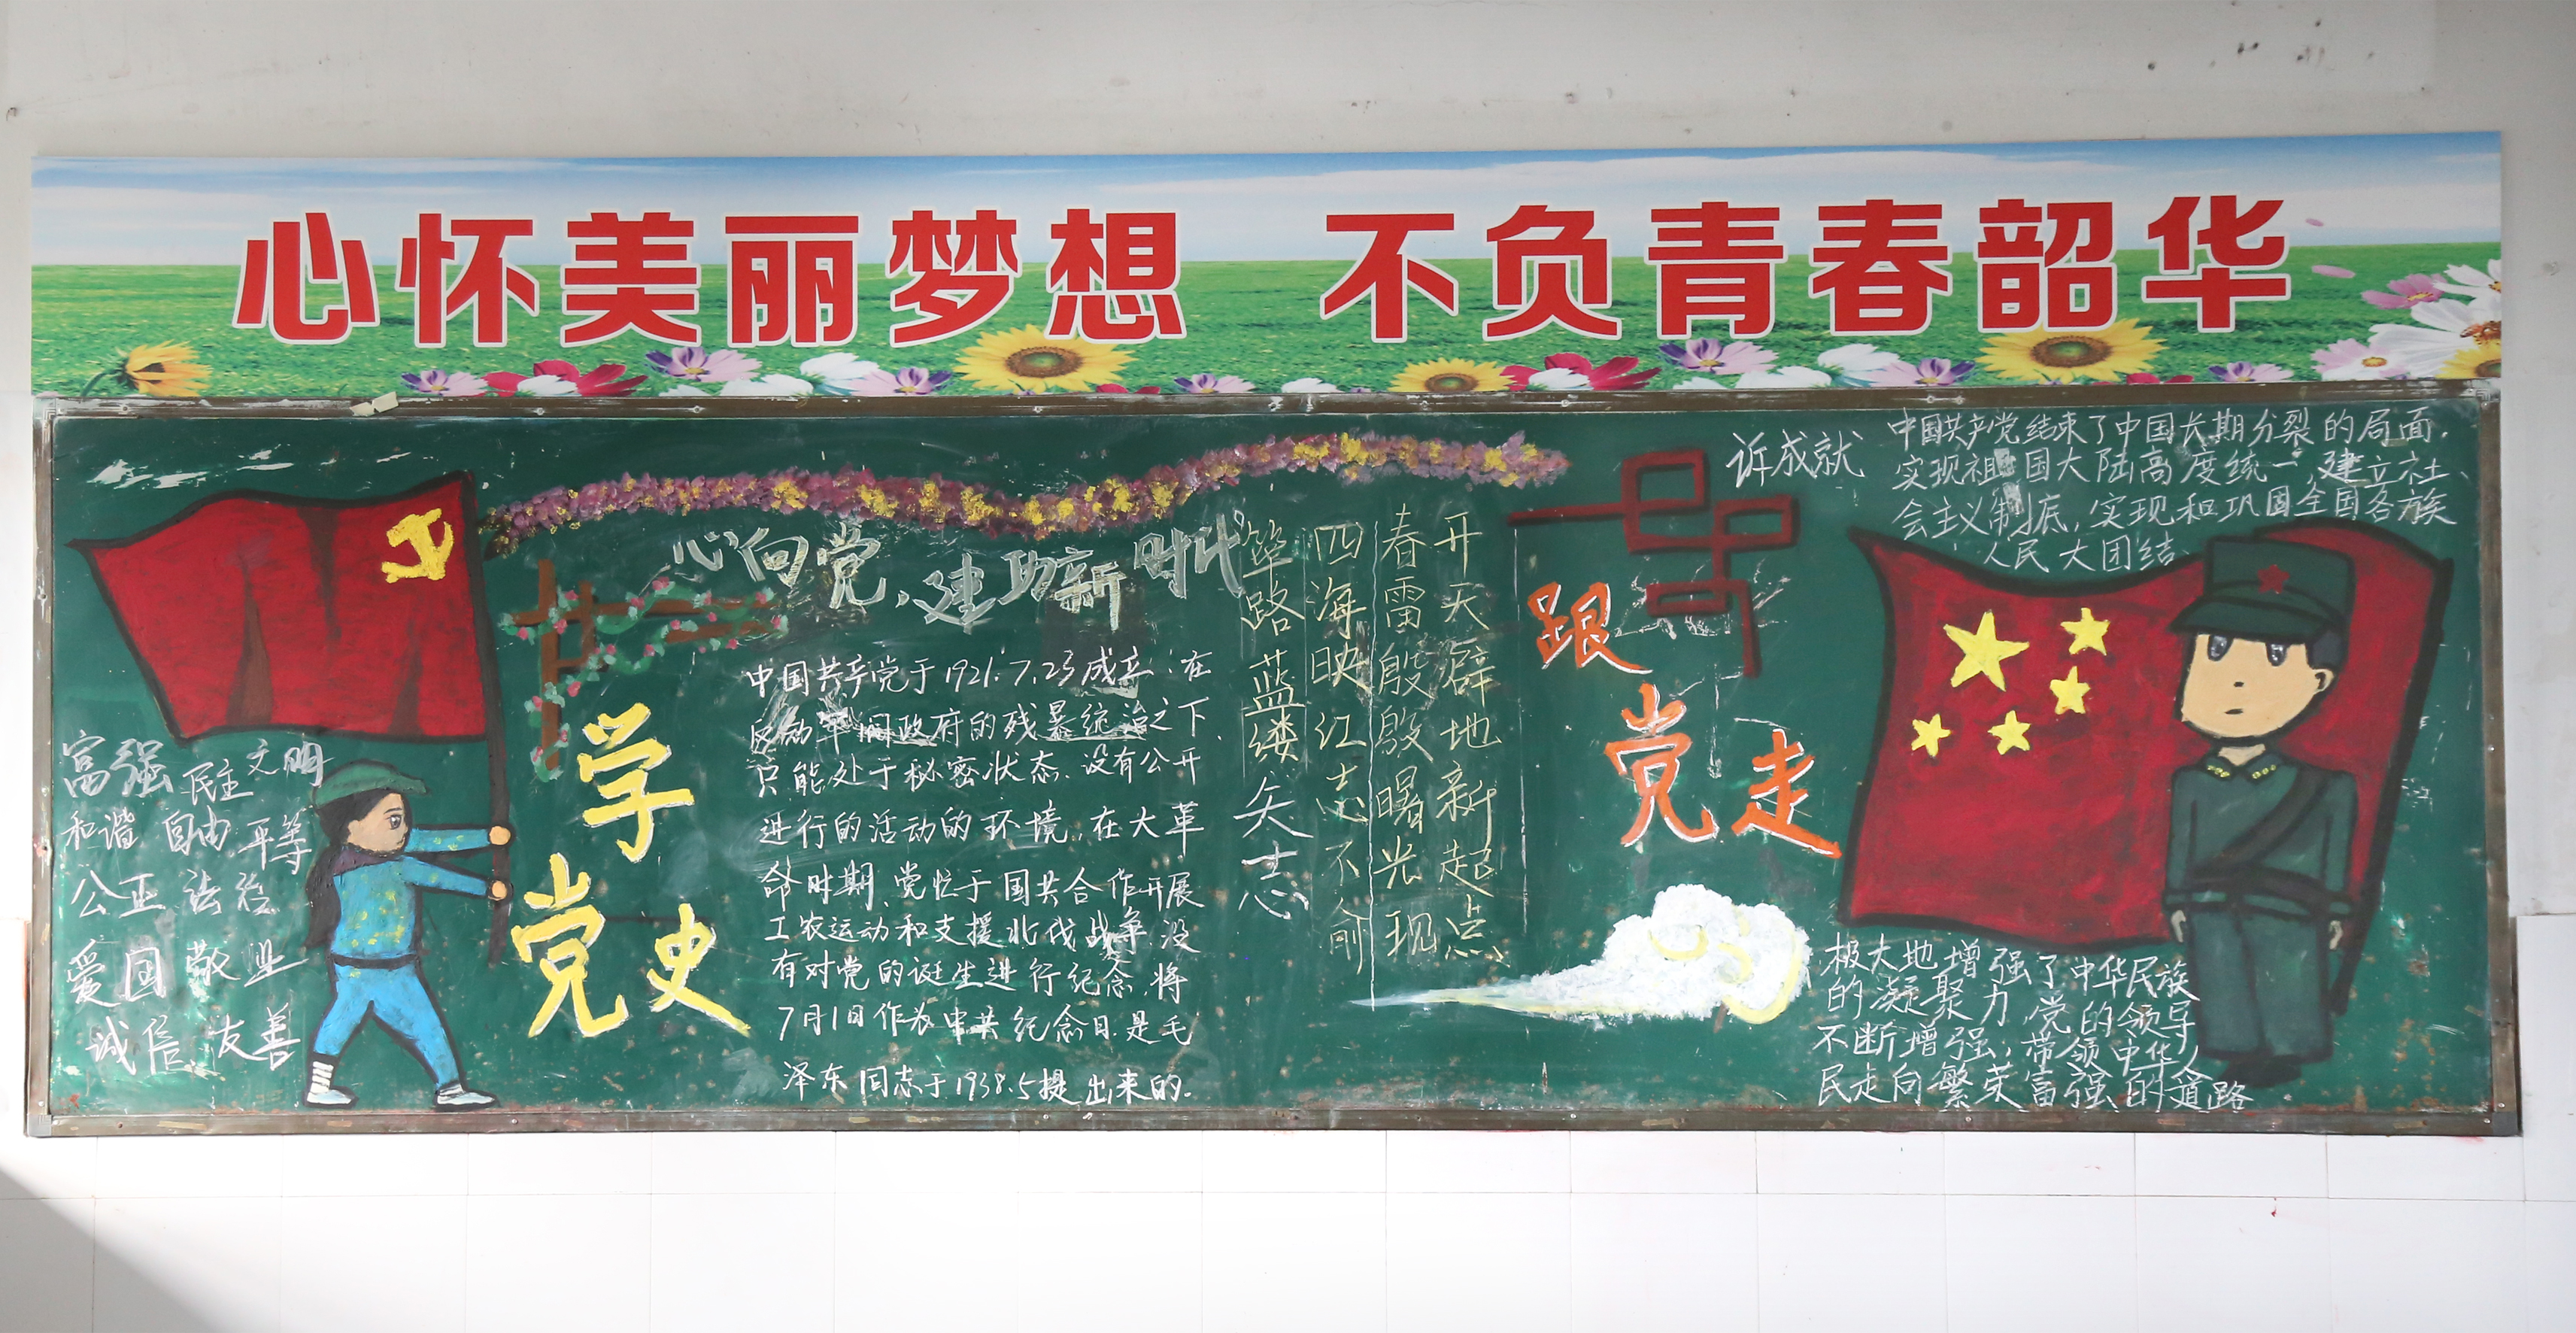 心怀美丽梦想 不负青春韶华
富强 民主 文明
和谐 自由 平等
公正 法治
爱国 敬业
诚信 友善
学
党史
心向党、建功新时代
中国共产党于1921.7.23成立.在
反动军阀政府的残暴统治之下.
只能处于秘密状态.没有公开
进行的活动的环境.在大革
命时期、党忙于国共合作开展
工农运动和支援北伐战争.没
有对党的诞生进行纪念.将
7月1日作为中共纪念日.是毛
泽东同志于1938.5提出来的.
开天辟地新起点
春雷殷殷曙光现
四海映红志不俞
筚路蓝缕矢志
跟
党走
诉成就
中国共产党结束了中国长期分裂的局面.
实现祖国大陆高度统一,建立社
会主义制底,实现和巩固全国各族
人民大团结
极大地增强了中华民族
的凝聚力,党的领导
不断增强;带领中华人
民走向繁荣富强的道路